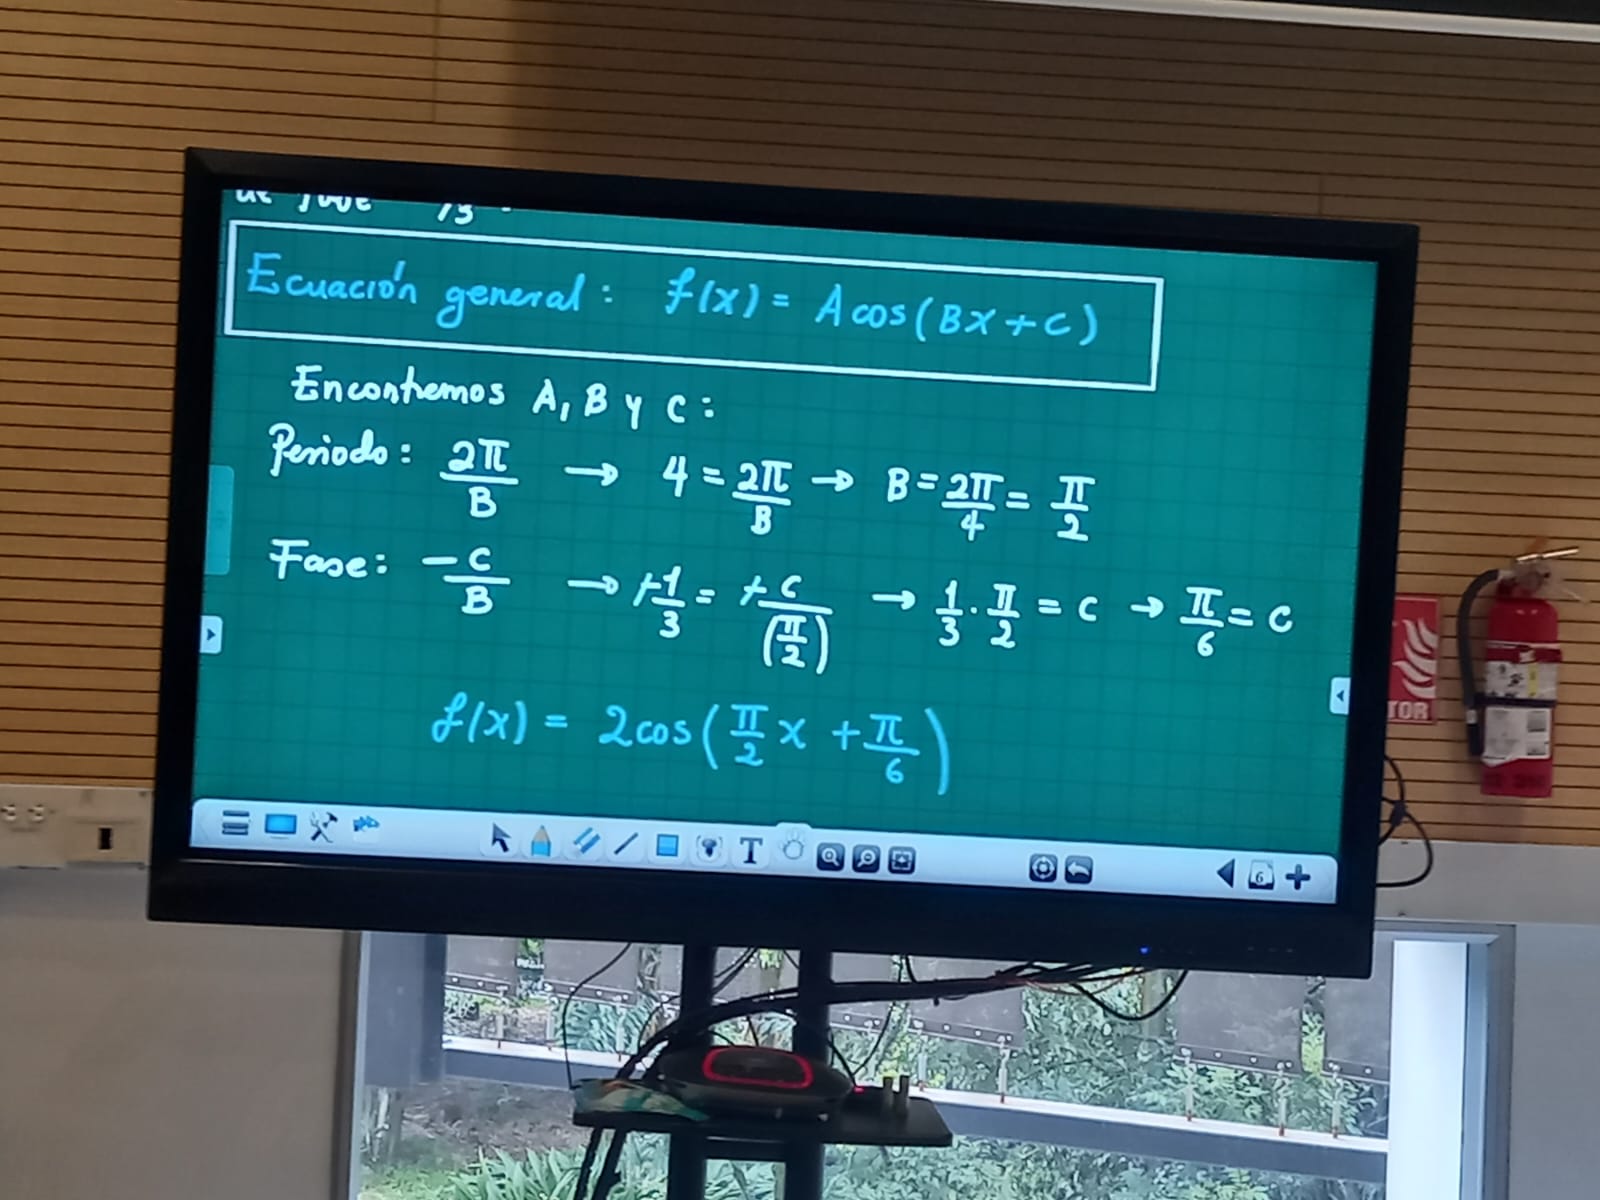 Ecuación general: f(x) = A cos(Bx + C)
Encontremos A, B y C:
Periodo: 2π/B → 4 = 2π/B → B = 2π/4 = π/2
Fase: -C/B → -1/3 = -C/(π/2) → 1/3 · π/2 = C → π/6 = C
f(x) = 2cos(π/2 x + π/6)
T
6
TOR